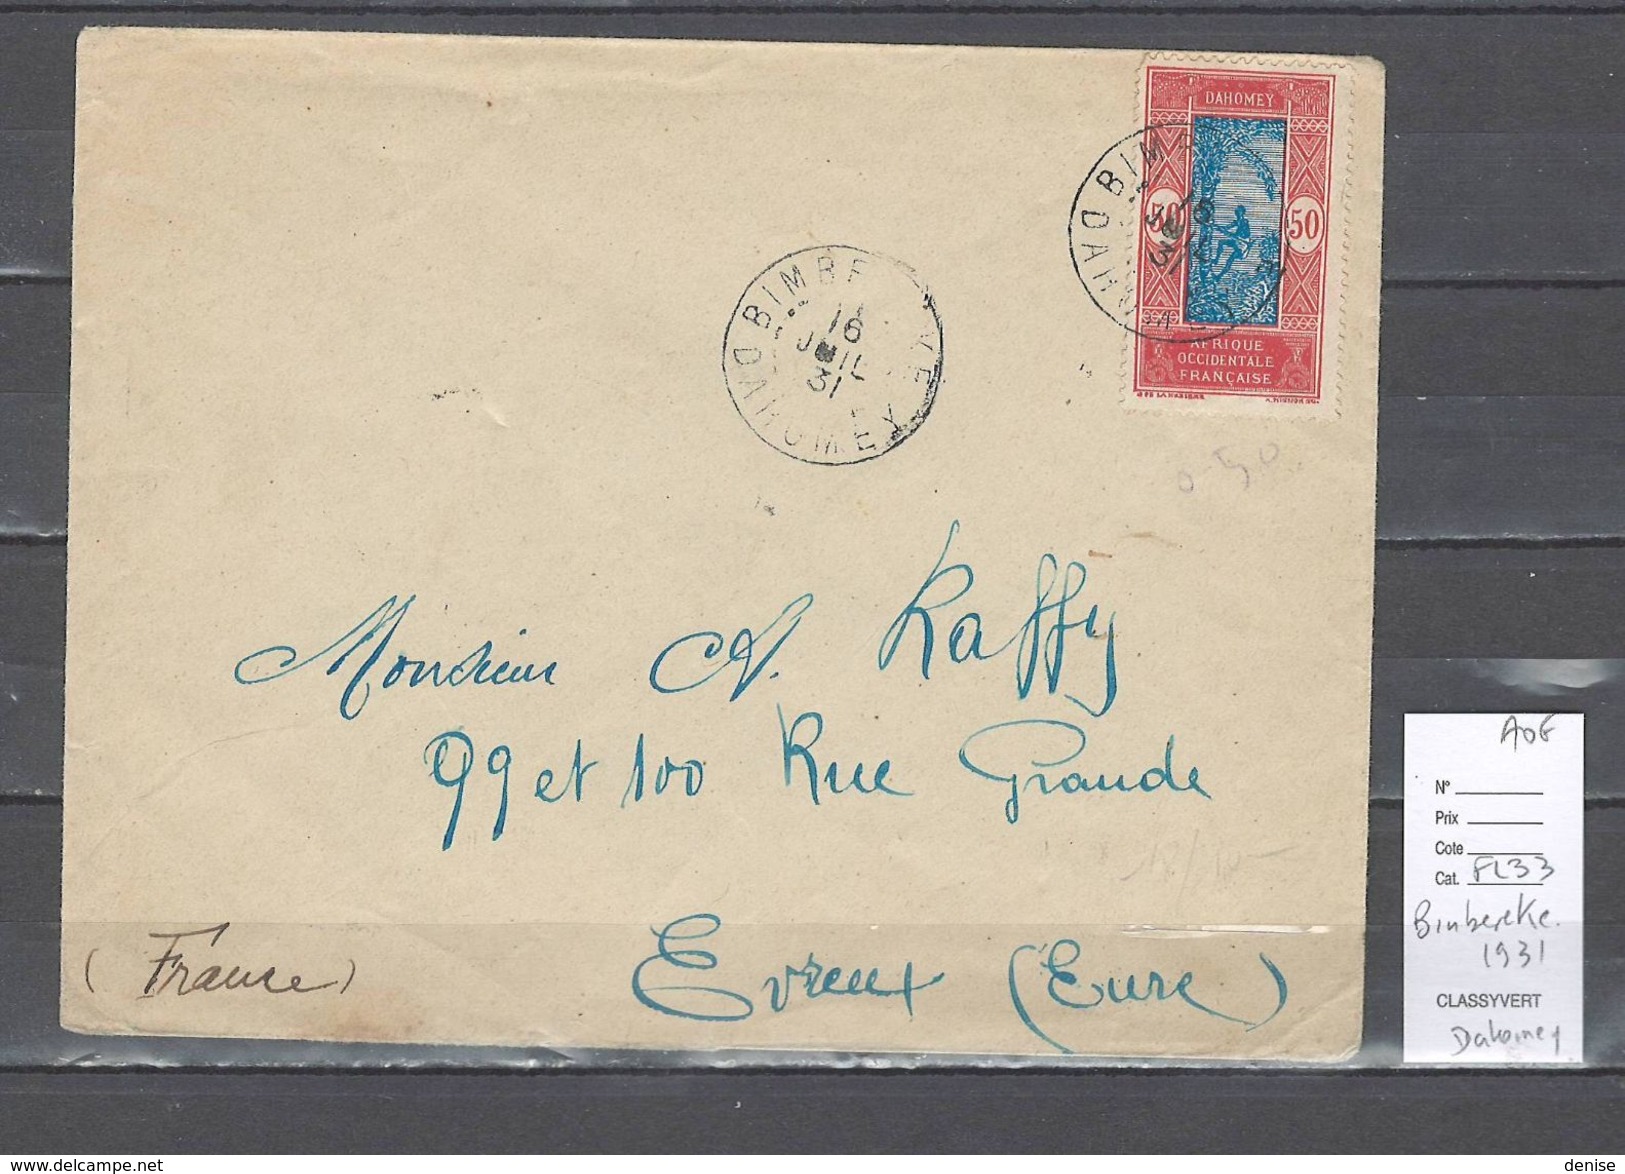 DAHOMEY
50 50
AFRIQUE
OCCIDENTALE
FRANÇAISE
DAHOMEY
16
JUIL
31
DAHOMEY
0.50
Monsieur A. Raffy
99 et 100 Rue Grande
Evreux (Eure)
(France)
AOF
N°
Prix
Cote
Cat. FL33
Binbereke.
1931
CLASSYVERT
Dahomey
delcampe.net
denise